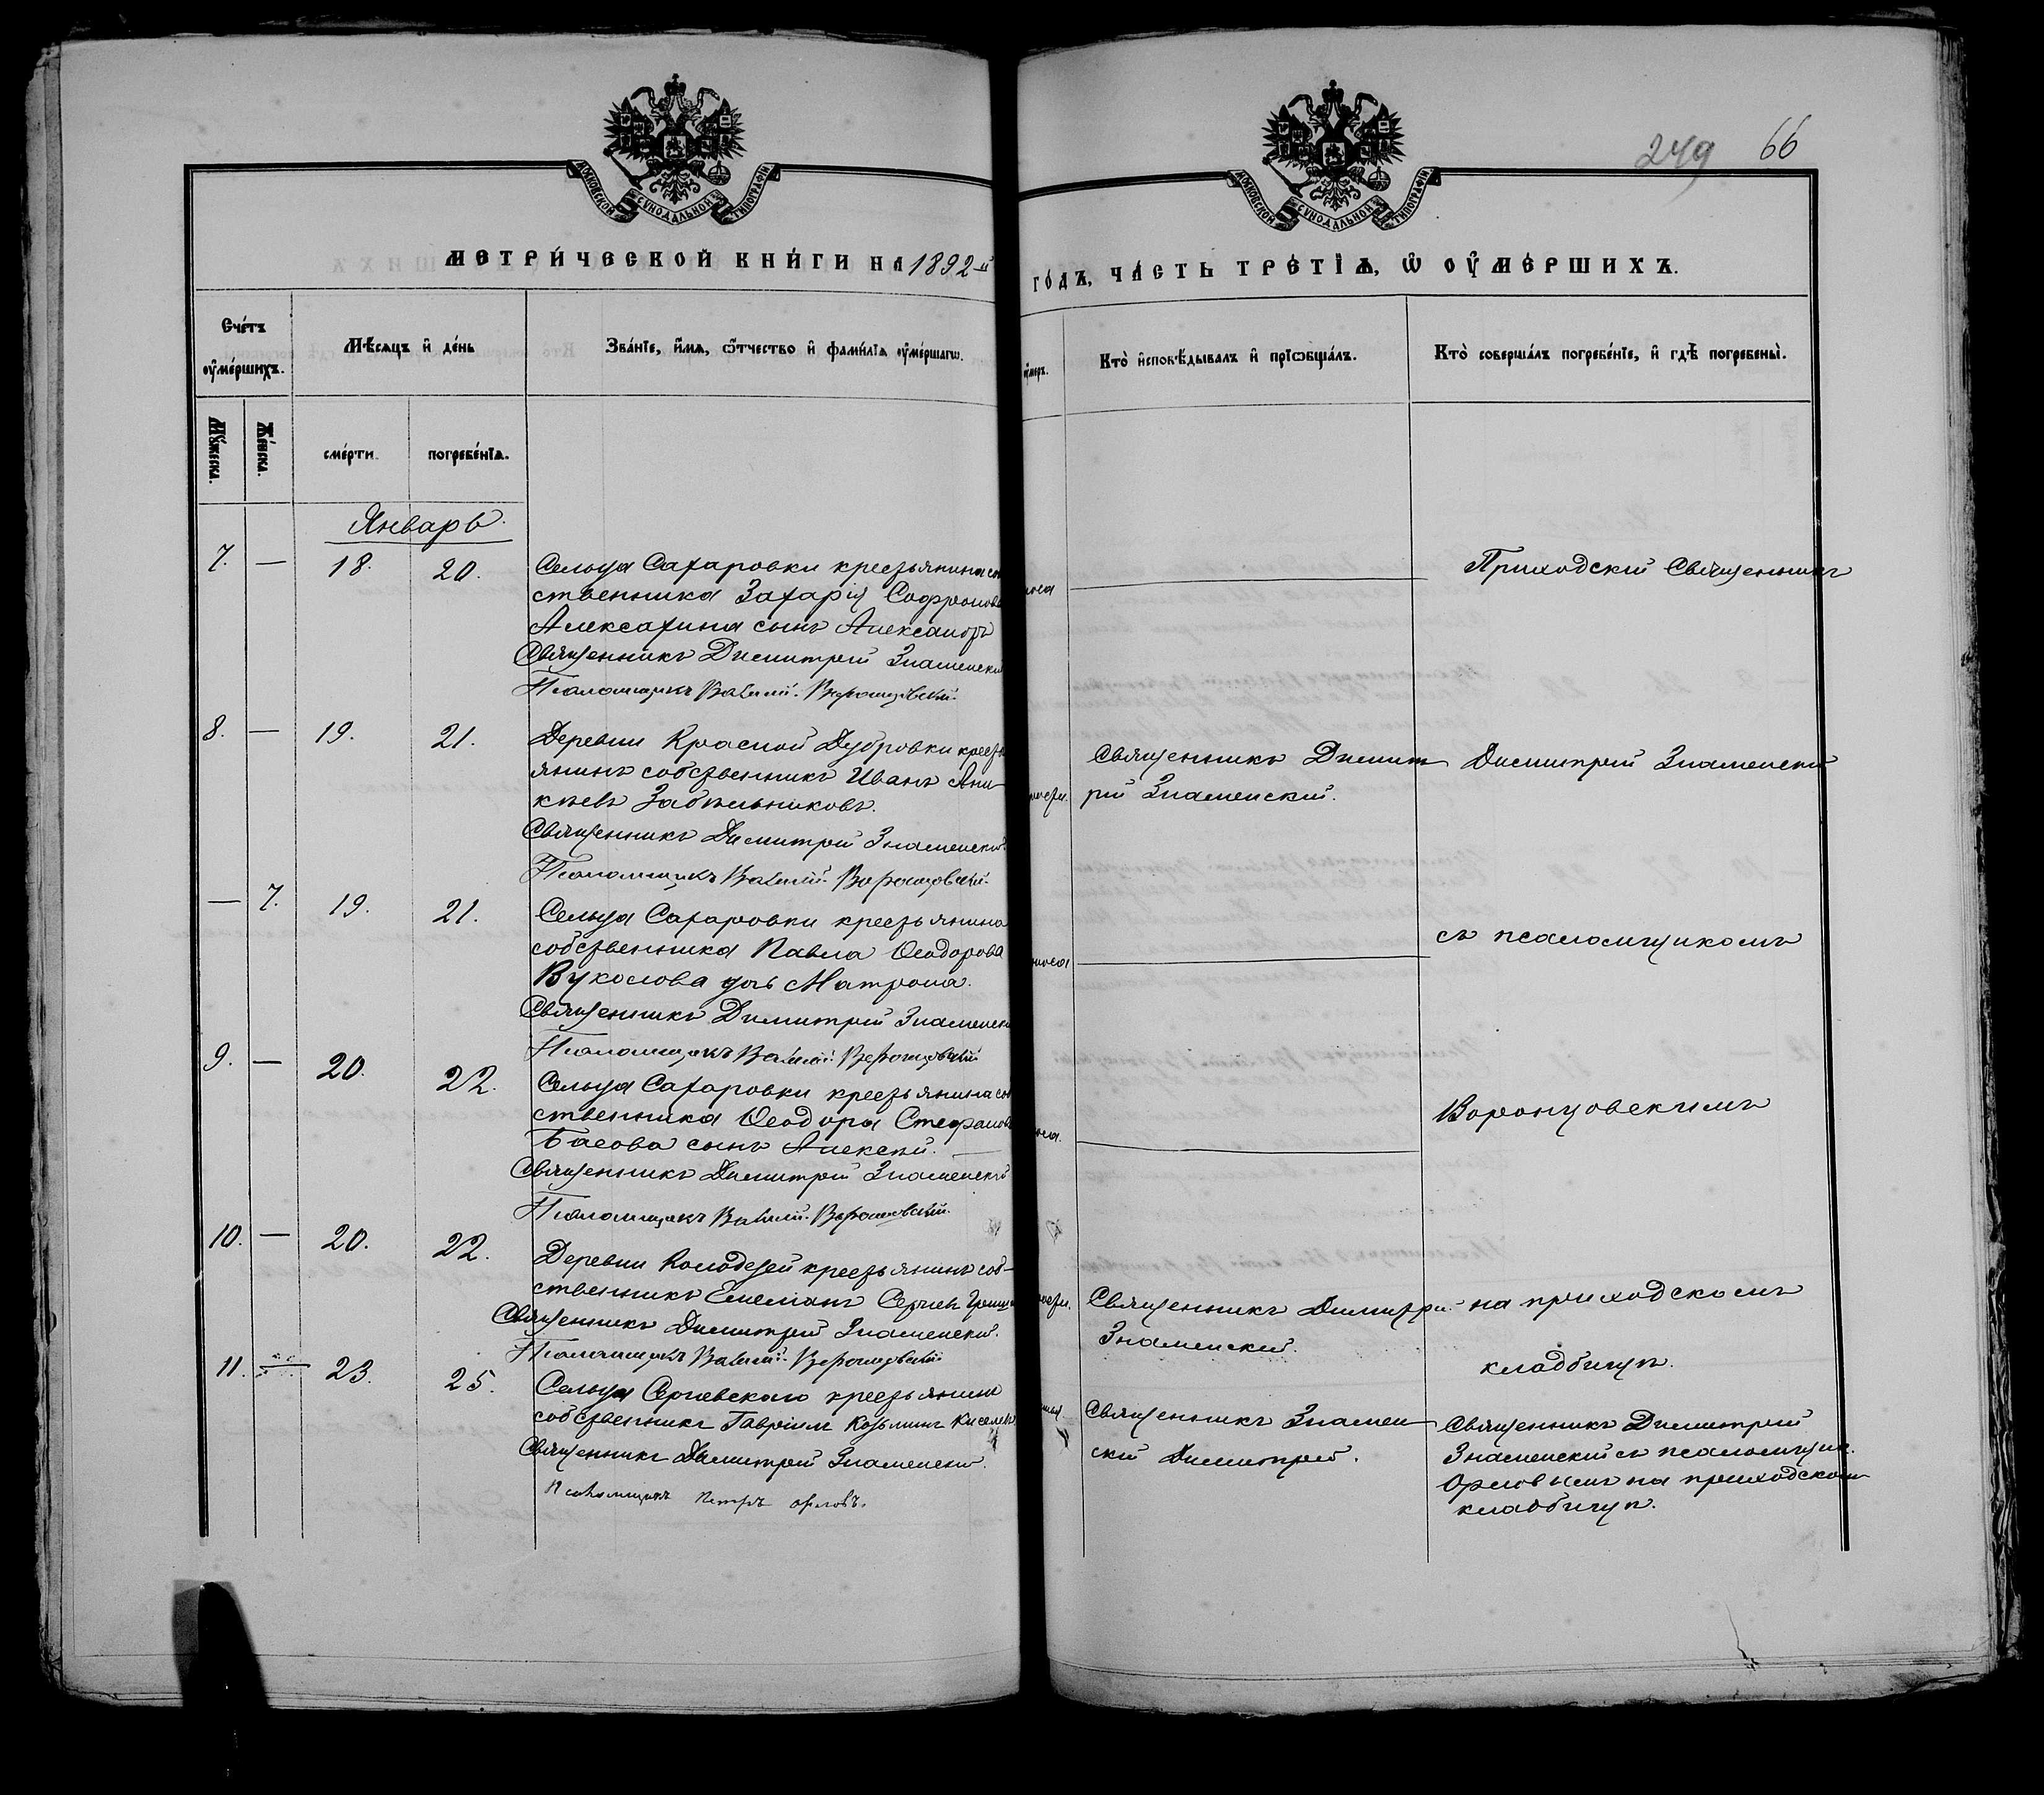 МОСКОВСКОЙ СУНОДАЛЬНОЙ ТИПОГРАФІИ
МОСКОВСКОЙ СУНОДАЛЬНОЙ ТИПОГРАФІИ
249 66
МЕТРИ́ЧЕСКОЙ КНИ́ГИ НА 1892-й
ГО́ДЪ, ЧА́СТЬ ТРЕ́ТІѦ, Ѡ ОУ҆МЕ́РШИХЪ.
Сче́тъ
оу҆ме́ршихъ.
Мѣ́сѧцъ и҆ де́нь
Зва́нїе, и҆́мѧ, ѻ҆́тчество и҆ фами́лїѧ оу҆ме́ршагѡ.
оу҆́меръ.
Кто̀ и҆сповѣ́дывалъ и҆ прїѡбща́лъ.
Кто̀ соверша́лъ погребе́нїе, и҆ гдѣ̀ погребены̀.
Мꙋ́жеска.
Же́нска.
сме́рти.
погребе́нїѧ.
Январь.
7. — 18. 20.
Сельца Сахаровки крестьянина соб
ственника Захарія Софронова
Алексахина сынъ Александръ
Священникъ Димитрій Знаменскій
Псаломщикъ Василій Воронцовскій.
Приходскій Священникъ
8. — 19. 21.
Деревни Красной Дубровки кресть
янинъ собственникъ Иванъ Ани-
кѣевъ Забѣльниковъ.
Священникъ Димитрій Знаменскій
Псаломщикъ Василій Воронцовскій.
Священникъ Димит
рій Знаменскій.
Димитрій Знаменскій
— 7. 19. 21.
Сельца Сахаровки крестьянина
собственника Павла Ѳеодорова
Вуколова дочь Матрона.
Священникъ Димитрій Знаменскій
Псаломщикъ Василій Воронцовскій
съ псаломщикомъ
9. — 20. 22.
Сельца Сахаровки крестьянина соб
ственника Ѳеодора Стефанова
Басова сынъ Алексѣй.
Священникъ Димитрій Знаменскій
Псаломщикъ Василій Воронцовскій.
Воронцовскимъ
10. — 20. 22.
Деревни Колодезей крестьянинъ соб-
ственникъ Емеліанъ Сергіевъ
Священникъ Димитрій Знаменскій.
Псаломщикъ Василій Воронцовскій
Священникъ Димитрій
Знаменскій.
на приходскомъ
кладбищѣ.
11. — 23. 25.
Сельца Сергіевскаго крестьянинъ
собственникъ Гавріилъ Козьминъ Киселевъ
Священникъ Димитрій Знаменскій.
Псаломщикъ Петръ Орловъ.
Священникъ Знамен
скій Димитрій.
Священникъ Димитрій
Знаменскій съ псаломщик.
Орловымъ на приходскомъ
кладбищѣ.